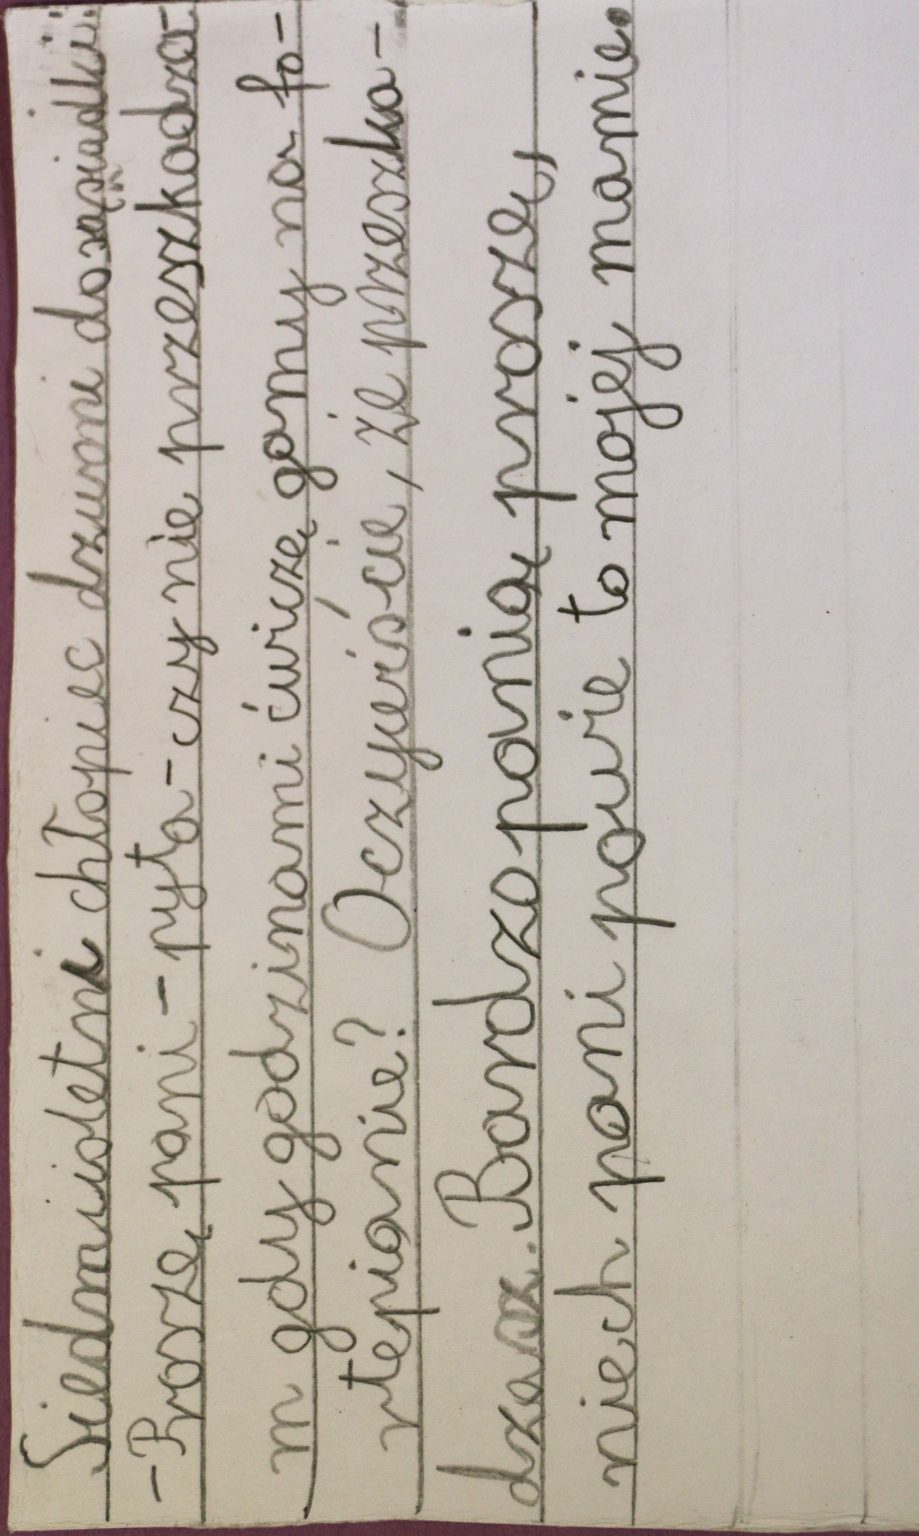 Siedmioletni chłopiec dzwni do sąsiadki:
- Proszę pani - pyta - czy nie przeszkadza-
m gdy godzinami ćwiczę gamy na fo-
rtepianie? Oczywiście, że przeszka-
dzasz. Bardzo panią proszę,
niech pani powie to mojej mamie.